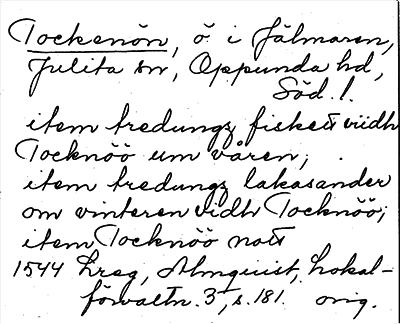 Tockenön, ö i Hjälmaren,
Julita sn, Oppunda hd,
Söd. l.
item tredungz fiskeŭ viidh
Tocknöö um våren;
item tredungz lakasander
om vinteren vidh Tocknöö;
item Tocknöö noŭ
1544 Lreg, Almquist, Lokal-
förvaltn. 3, s. 181. orig.